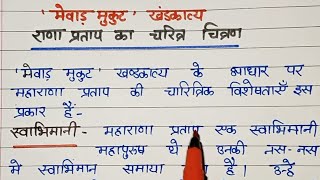 'मेवाड़ मुकुट' खंडकाव्य
राणा प्रताप का चरित्र चित्रण
'मेवाड़ मुकुट' खण्डकाव्य के आधार पर
महाराणा प्रताप की चारित्रिक विशेषताएँ इस
प्रकार हैं-
स्वाभिमानी- महाराणा प्रताप एक स्वाभिमानी
महापुरुष थे। उनकी नस-नस
मे स्वाभिमान समाया है। उन्हें